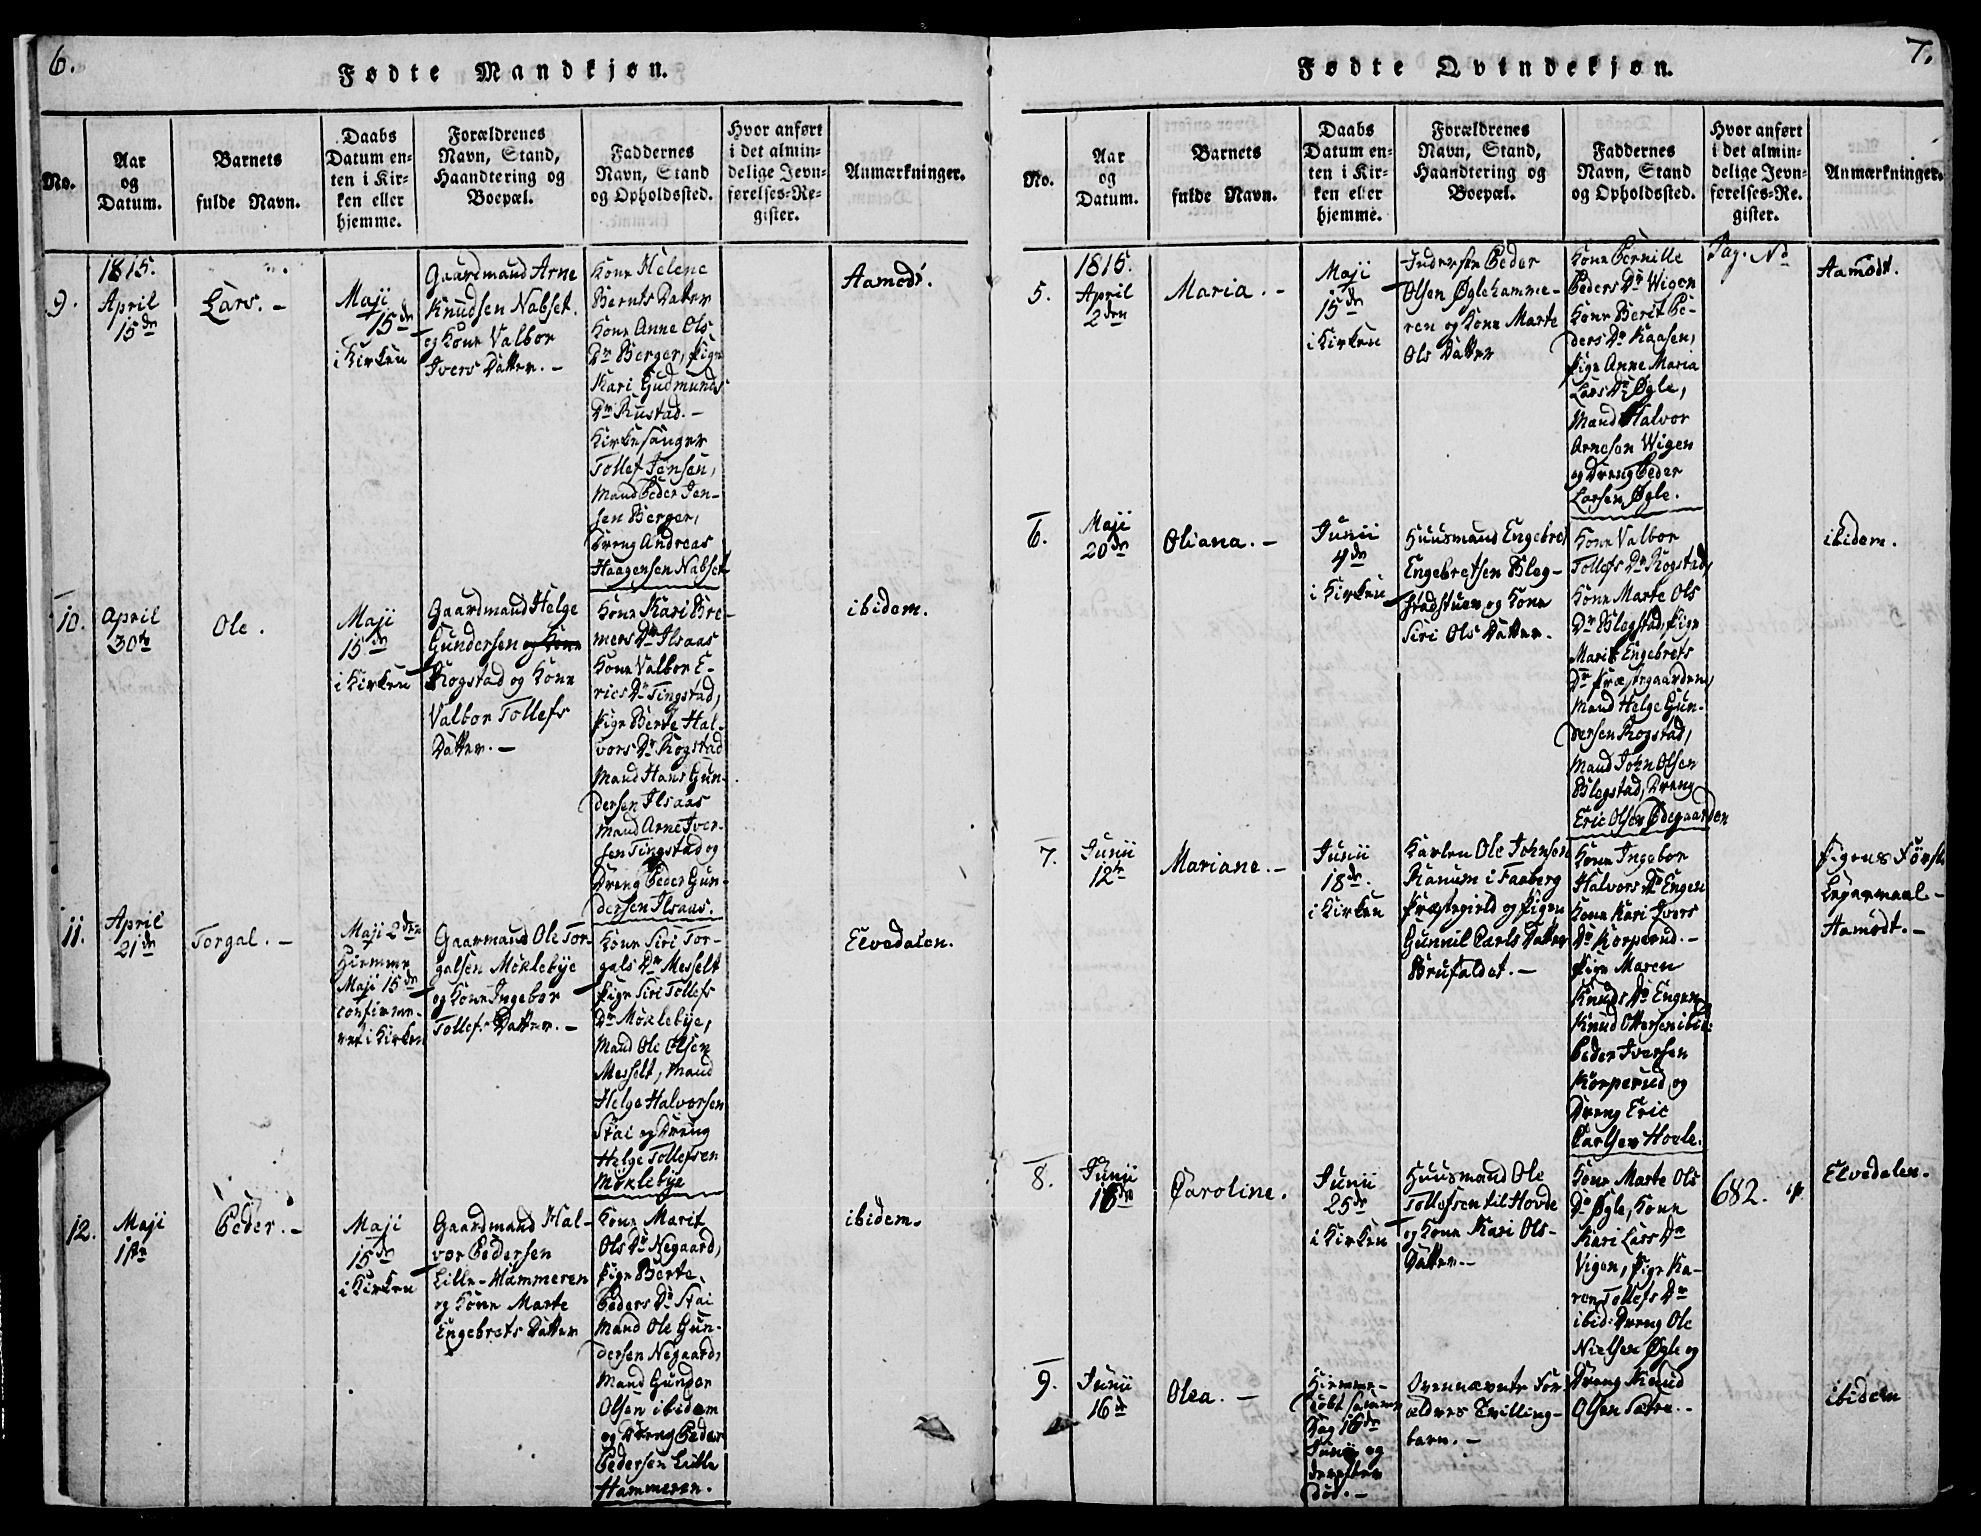 6.
Fødte Mandkjøn.
No.
Aar
og
Datum.
Barnets
fulde Navn.
Daabs
Datum en-
ten i Kir-
ken eller
hjemme.
Forældrenes
Navn, Stand,
Haandtering og
Boepæl.
Faddernes
Navn, Stand
og Opholdssted.
Hvor anført
i det almin-
delige Jevn-
førelses-Re-
gister.
Anmærkninger.
9.
1815.
April
15de
Lars. -
Maji
15de
i Kirken
Gaardmand Arne
Knudsen Nabset.
og Kone Valbor
Ivers Datter. -
Kone Helene
Bernts Datter
Kone Anne Ols
Dr Berger, Pige
Kari Gudmunds
Dr Rustad. -
Kirkesanger
Tollef Jensen,
Mand Peder Jen-
sen Berger,
Dreng Andreas
Haagensen Nabset
Aamodt.
10.
April
30te
Ole.
Maji
15de
i Kirken
Gaardmand Helge
Gundersen og Kone
Rogstad og Kone
Valbor Tollefs
Datter. -
Kone Kari Bre-
mers Dr Ilsaas
Kone Valbor E-
rics Dr Tingstad,
Pige Berte Hal-
vors Dr Rogstad
Mand Hans Gun-
dersen Ilsaas
Mand Arne Iver-
sen Tingstad og
Dreng Peder Gun-
dersen Ilsaas.
ibidem.
11.
April
21de
Torgal. -
Maji 2den
Hiemme
Maji 15de
confirme-
ret i Kirken
Gaarmand Ole Tor-
galsen Möklebÿe
og Kone Ingebor
Tollefs Datter. -
Kone Siri Tor-
gals Dr Messelt
Pige Siri Tollefs
Dr Möklebÿe,
Mand Ole Olsen
Messelt, Mand
Helge Halvorsen
Stai og Dreng
Helge Tollefsen
Möklebÿe
Elvedalen.
12.
Maji
1ste
Peder. -
Maji
15de
i Kirken
Gaardmand Hal-
vor Pedersen
Lille-Hammeren
og Kone Marte
Engebrets Datter
Kone Marit
Ols Dr Negaard,
Pige Berte
Peders Dr Stai
Mand Ole Gun-
dersen Negaard,
Mand Gunder
Olsen ibidem
og Dreng Peder
Pedersen Lille
Hammeren.
ibidem.
7.
Fødte Qvindekjøn.
No.
Aar
og
Datum.
Barnets
fulde Navn.
Daabs
Datum en-
ten i Kir-
ken eller
hjemme.
Forældrenes
Navn, Stand,
Haandtering og
Boepæl.
Faddernes
Navn, Stand
og Opholdssted.
Hvor anført
i det almin-
delige Jevn-
førelses-Re-
gister.
Anmærkninger.
5.
1815.
April
2den
Maria. -
Maji
15de
i Kirken
Inderser Peder
Olsen Øglehamme-
ren og Kone Marte
Ols Datter
Kone Pernille
Peders Dr Wigen
Kone Berit Pe-
ders Dr Kaasen,
Pige Anne Maria
Lars Dr Øgle,
Mand Halvor
Arnesen Wigen
og Dreng Peder
Larsen Øgle.
Pag. No
Aamodt.
6.
Maji
20de
Oliana. -
Junii
4de
i Kirken
Huusmand Engebret
Engebretsen Bleg-
stadstuer og Kone
Siri Ols Datter.
Kone Valbor
Tollefs Dr Rogstad,
Kone Marte Ols
Dr Blegstad, Pige
Marit Engebrets
Dr Præstegaarden,
Mand Helge Gun-
dersen Rogstad,
Mand John Olsen
Blegstad, Dreng
Eric Olsen Ødegaarden
ibidem.
7.
Junii
12te
Mariane. -
Junii
18de.
i Kirken
Karlen Ole Johnsen
Kanum i Faaberg
Præstegield og Pigen
Gunnil Carls Datter
Brufaldet. -
Kone Ingebor
Halvors Dr Engen
Kone Kari Ivers
Dr Korperud. -
Pige Maren
Knuds Dr Engen
Knud Ottersen ibid:
Peder Iversen
Korperud og
Dreng Eric
Carlsen Hovle.
Pigens Første
Leiermaal -
Aamodt. -
8.
Junii
16de
Caroline.
Junii
25de
i Kirken
Huusmand Ole
Tollefsen til Hovde
og Kone Kari Ols-
Datter. -
Kone Marte Ols
Dr Øgle, Kone
Kari Lars Dr
Vigen, Pige Ka-
ren Tollefs Dr
ibid: Dreng Ole
Nielsen Øgle og
Dreng Knud
Olsen Sætre. -
682.
Elvedalen.
9.
Junii
16de
Olea. -
Hiemme-
døbt samme
Dag 16de
Junii og
derefter
død. -
Ovennævnte For-
ældres Tvilling-
barn. -
ibidem